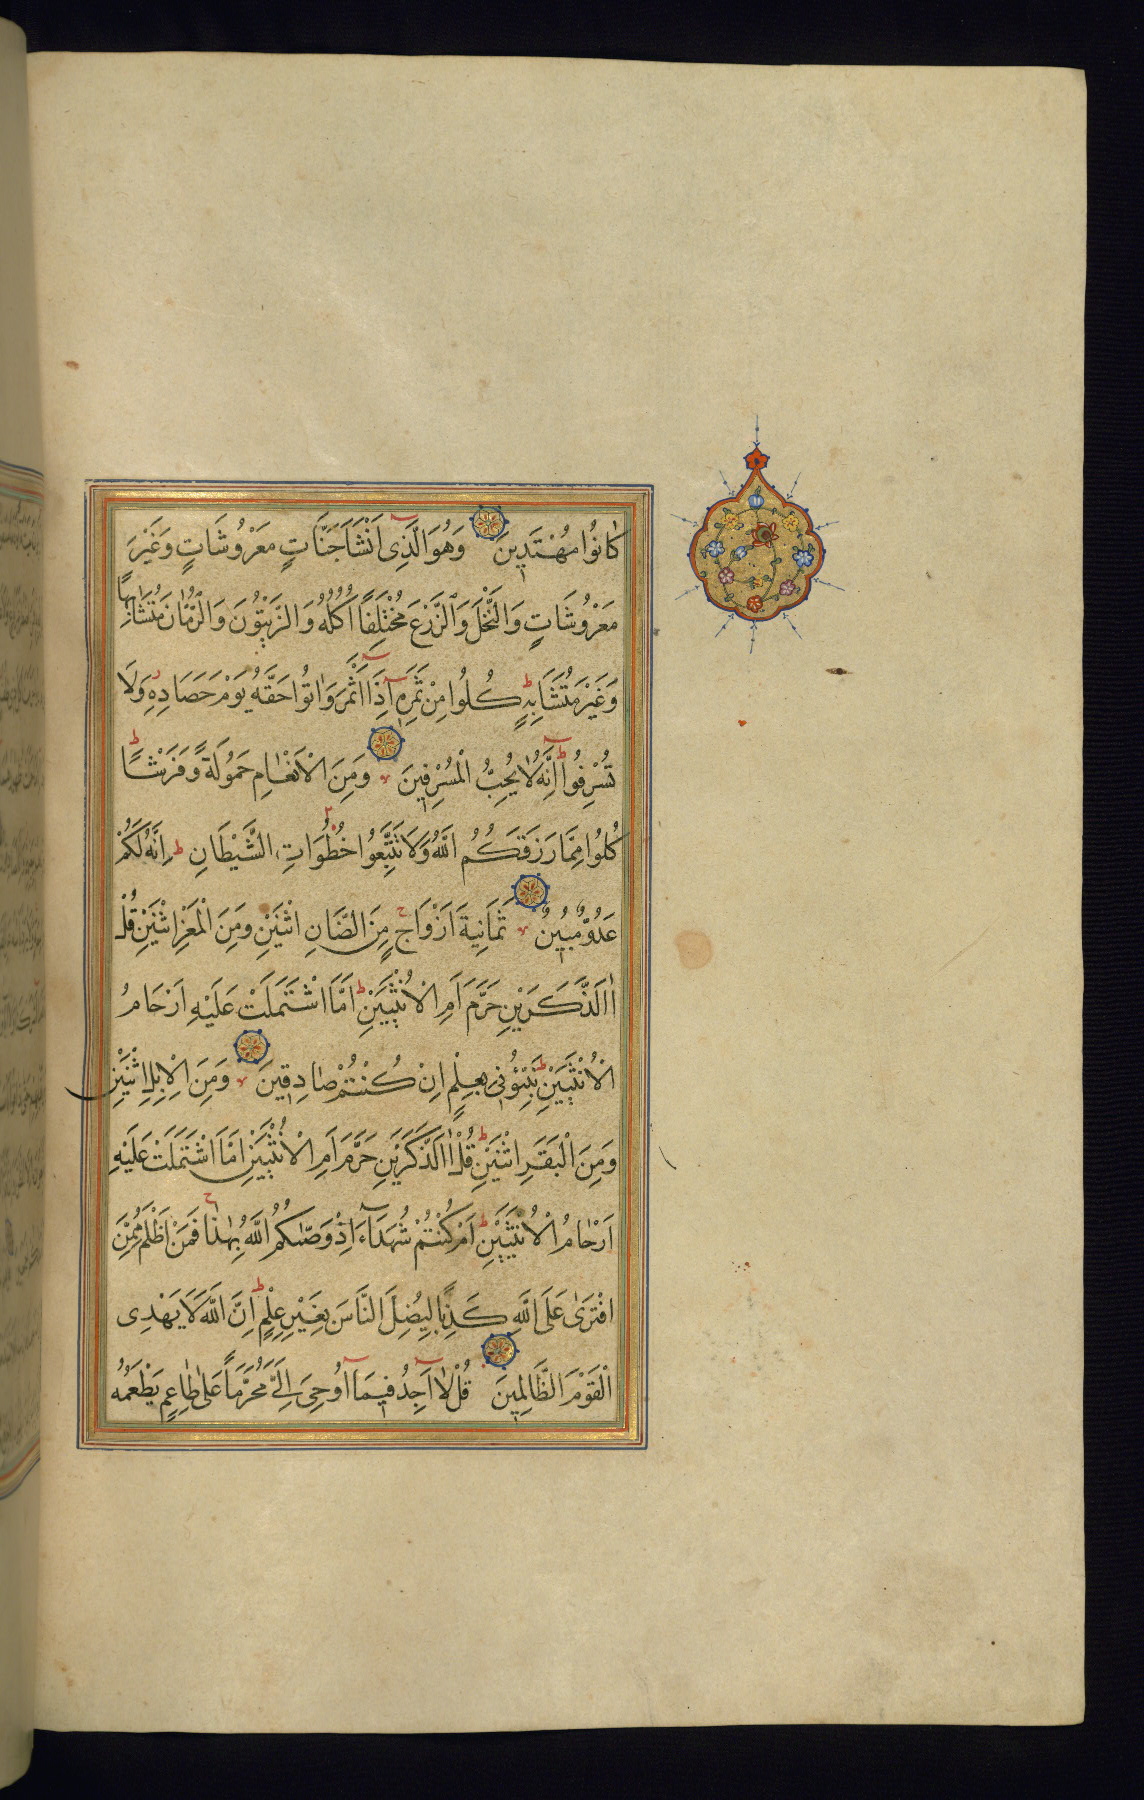 كَانُوا مُهْتَدِينَ وَهُوَ الَّذِى اَنْشَاَ جَنَّاتٍ مَعْرُوشَاتٍ وَغَيْرَ
مَعْرُوشَاتٍ وَالنَّخْلَ وَالزَّرْعَ مُخْتَلِفًا اُكُلُهُ وَالزَّيْتُونَ وَالرُّمَّانَ مُتَشَابِهًا
وَغَيْرَ مُتَشَابِهٍ ط كُلُوا مِنْ ثَمَرِهِ اِذَا اَثْمَرَ وَاٰتُوا حَقَّهُ يَوْمَ حَصَادِهِ وَلَا
تُسْرِفُوا ط اِنَّهُ لَا يُحِبُّ الْمُسْرِفِينَ وَمِنَ الْاَنْعَامِ حَمُولَةً وَفَرْشًا ط
كُلُوا مِمَّا رَزَقَكُمُ اللّٰهُ وَلَا تَتَّبِعُوا خُطُوَاتِ الشَّيْطَانِ ط اِنَّهُ لَكُمْ
عَدُوٌّ مُبِينٌ ثَمَانِيَةَ اَزْوَاجٍ ج مِنَ الضَّانِ اثْنَيْنِ وَمِنَ الْمَعْزِ اثْنَيْنِ قُلْ
اٰالذَّكَرَيْنِ حَرَّمَ اَمِ الْاُنْثَيَيْنِ ط اَمَّا اشْتَمَلَتْ عَلَيْهِ اَرْحَامُ
الْاُنْثَيَيْنِ ط نَبِّؤُنِى بِعِلْمٍ اِنْ كُنْتُمْ صَادِقِينَ وَمِنَ الْاِبِلِ اثْنَيْنِ
وَمِنَ الْبَقَرِ اثْنَيْنِ ط قُلْ اٰالذَّكَرَيْنِ حَرَّمَ اَمِ الْاُنْثَيَيْنِ اَمَّا اشْتَمَلَتْ عَلَيْهِ
اَرْحَامُ الْاُنْثَيَيْنِ ط اَمْ كُنْتُمْ شُهَدَاءَ اِذْ وَصّٰىكُمُ اللّٰهُ بِهٰذَا ج فَمَنْ اَظْلَمُ مِمَّنِ
افْتَرٰى عَلَى اللّٰهِ كَذِبًا لِيُضِلَّ النَّاسَ بِغَيْرِ عِلْمٍ ط اِنَّ اللّٰهَ لَا يَهْدِى
الْقَوْمَ الظَّالِمِينَ قُلْ لَا اَجِدُ فِيمَا اُوحِىَ اِلَىَّ مُحَرَّمًا عَلٰى طَاعِمٍ يَطْعَمُهُ